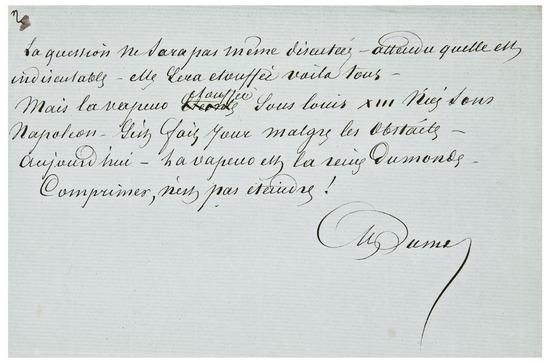 2
La question ne sera pas même discutée – attendu quelle est
indiscutable – elle sera etouffée voila tout –
Mais la vapeur etouffée Sous louis XIII Niée Sous
Napoleon – S'est fait jour malgre les obstacles –
Aujourd'hui – La vapeur est la reine du monde –
Comprimer, n'est pas éteindre !
Dumas